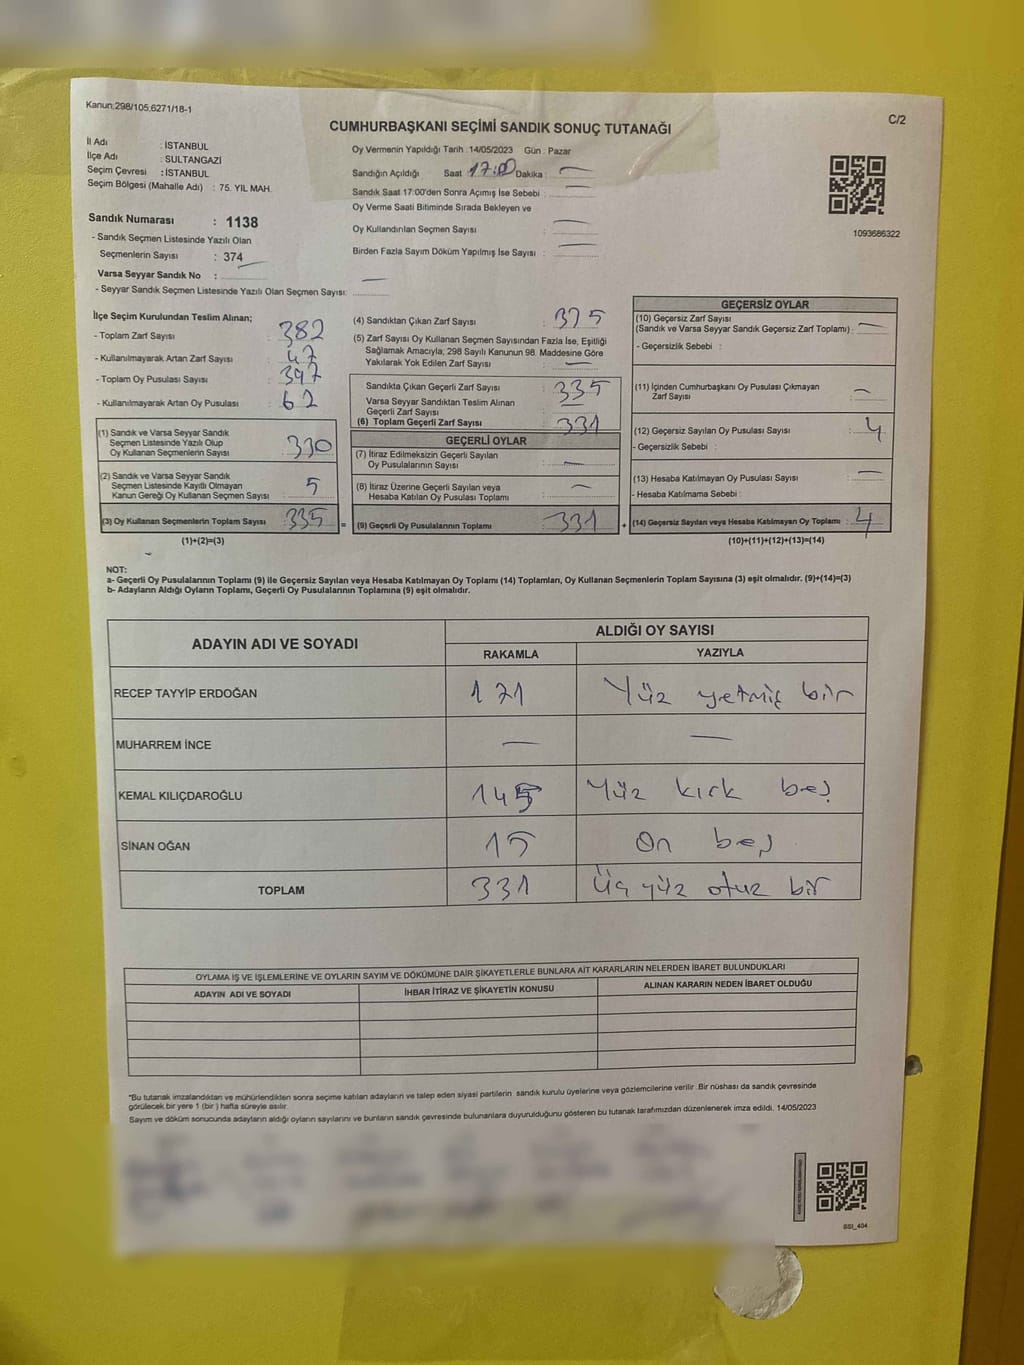 Kanun:298/105,6271/18-1
C/2
CUMHURBAŞKANI SEÇİMİ SANDIK SONUÇ TUTANAĞI
İl Adı : İSTANBUL
İlçe Adı : SULTANGAZİ
Seçim Çevresi : İSTANBUL
Seçim Bölgesi (Mahalle Adı) : 75. YIL MAH.
Sandık Numarası : 1138
- Sandık Seçmen Listesinde Yazılı Olan
Seçmenlerin Sayısı : 374
Varsa Seyyar Sandık No :
- Seyyar Sandık Seçmen Listesinde Yazılı Olan Seçmen Sayısı:
Oy Vermenin Yapıldığı Tarih : 14/05/2023 Gün : Pazar
Sandığın Açıldığı Saat 17:00 Dakika : —
Sandık Saat 17:00'den Sonra Açımış İse Sebebi : —
Oy Verme Saati Bitiminde Sırada Bekleyen ve
Oy Kullandırılan Seçmen Sayısı : —
Birden Fazla Sayım Döküm Yapılmış İse Sayısı : —
1093686322
İlçe Seçim Kurulundan Teslim Alınan;
- Toplam Zarf Sayısı : 382
- Kullanılmayarak Artan Zarf Sayısı : 47
- Toplam Oy Pusulası Sayısı : 397
- Kullanılmayarak Artan Oy Pusulası : 62
(1) Sandık ve Varsa Seyyar Sandık
Seçmen Listesinde Yazılı Olup
Oy Kullanan Seçmenlerin Sayısı : 330
(2) Sandık ve Varsa Seyyar Sandık
Seçmen Listesinde Kayıtlı Olmayan
Kanun Gereği Oy Kullanan Seçmen Sayısı : 5
(3) Oy Kullanan Seçmenlerin Toplam Sayısı : 335 =
(1)+(2)=(3)
(4) Sandıktan Çıkan Zarf Sayısı : 375
(5) Zarf Sayısı Oy Kullanan Seçmen Sayısından Fazla İse, Eşitliği
Sağlamak Amacıyla, 298 Sayılı Kanunun 98. Maddesine Göre
Yakılarak Yok Edilen Zarf Sayısı : —
Sandıkta Çıkan Geçerli Zarf Sayısı : 335
Varsa Seyyar Sandıktan Teslim Alınan
Geçerli Zarf Sayısı : —
(6) Toplam Geçerli Zarf Sayısı : 331
GEÇERLİ OYLAR
(7) İtiraz Edilmeksizin Geçerli Sayılan
Oy Pusulalarının Sayısı : —
(8) İtiraz Üzerine Geçerli Sayılan veya
Hesaba Katılan Oy Pusulası Toplamı : —
(9) Geçerli Oy Pusulalarının Toplamı : 331 +
GEÇERSİZ OYLAR
(10) Geçersiz Zarf Sayısı
(Sandık ve Varsa Seyyar Sandık Geçersiz Zarf Toplamı) : —
- Geçersizlik Sebebi :
(11) İçinden Cumhurbaşkanı Oy Pusulası Çıkmayan
Zarf Sayısı : —
(12) Geçersiz Sayılan Oy Pusulası Sayısı : 4
- Geçersizlik Sebebi :
(13) Hesaba Katılmayan Oy Pusulası Sayısı : —
- Hesaba Katılmama Sebebi :
(14) Geçersiz Sayılan veya Hesaba Katılmayan Oy Toplamı : 4
(10)+(11)+(12)+(13)=(14)
NOT:
a- Geçerli Oy Pusulalarının Toplamı (9) ile Geçersiz Sayılan veya Hesaba Katılmayan Oy Toplamı (14) Toplamları, Oy Kullanan Seçmenlerin Toplam Sayısına (3) eşit olmalıdır. (9)+(14)=(3)
b- Adayların Aldığı Oyların Toplamı, Geçerli Oy Pusulalarının Toplamına (9) eşit olmalıdır.
ADAYIN ADI VE SOYADI
ALDIĞI OY SAYISI
RAKAMLA YAZIYLA
RECEP TAYYİP ERDOĞAN 171 Yüz yetmiş bir
MUHARREM İNCE — —
KEMAL KILIÇDAROĞLU 145 Yüz kırk beş
SİNAN OĞAN 15 On beş
TOPLAM 331 Üç yüz otuz bir
OYLAMA İŞ VE İŞLEMLERİNE VE OYLARIN SAYIM VE DÖKÜMÜNE DAİR ŞİKAYETLERLE BUNLARA AİT KARARLARIN NELERDEN İBARET BULUNDUKLARI
ADAYIN ADI VE SOYADI İHBAR İTİRAZ VE ŞİKAYETİN KONUSU ALINAN KARARIN NEDEN İBARET OLDUĞU
*Bu tutanak imzalandıktan ve mühürlendikten sonra seçime katılan adayların ve talep eden siyasi partilerin sandık kurulu üyelerine veya gözlemcilerine verilir. Bir nüshası da sandık çevresinde
görülecek bir yere 1 (bir ) hafta süreyle asılır.
Sayım ve döküm sonucunda adayların aldığı oyların sayılarını ve bunların sandık çevresinde bulunanlara duyurulduğunu gösteren bu tutanak tarafımızdan düzenlenerek imza edildi. 14/05/2023
SSI_404